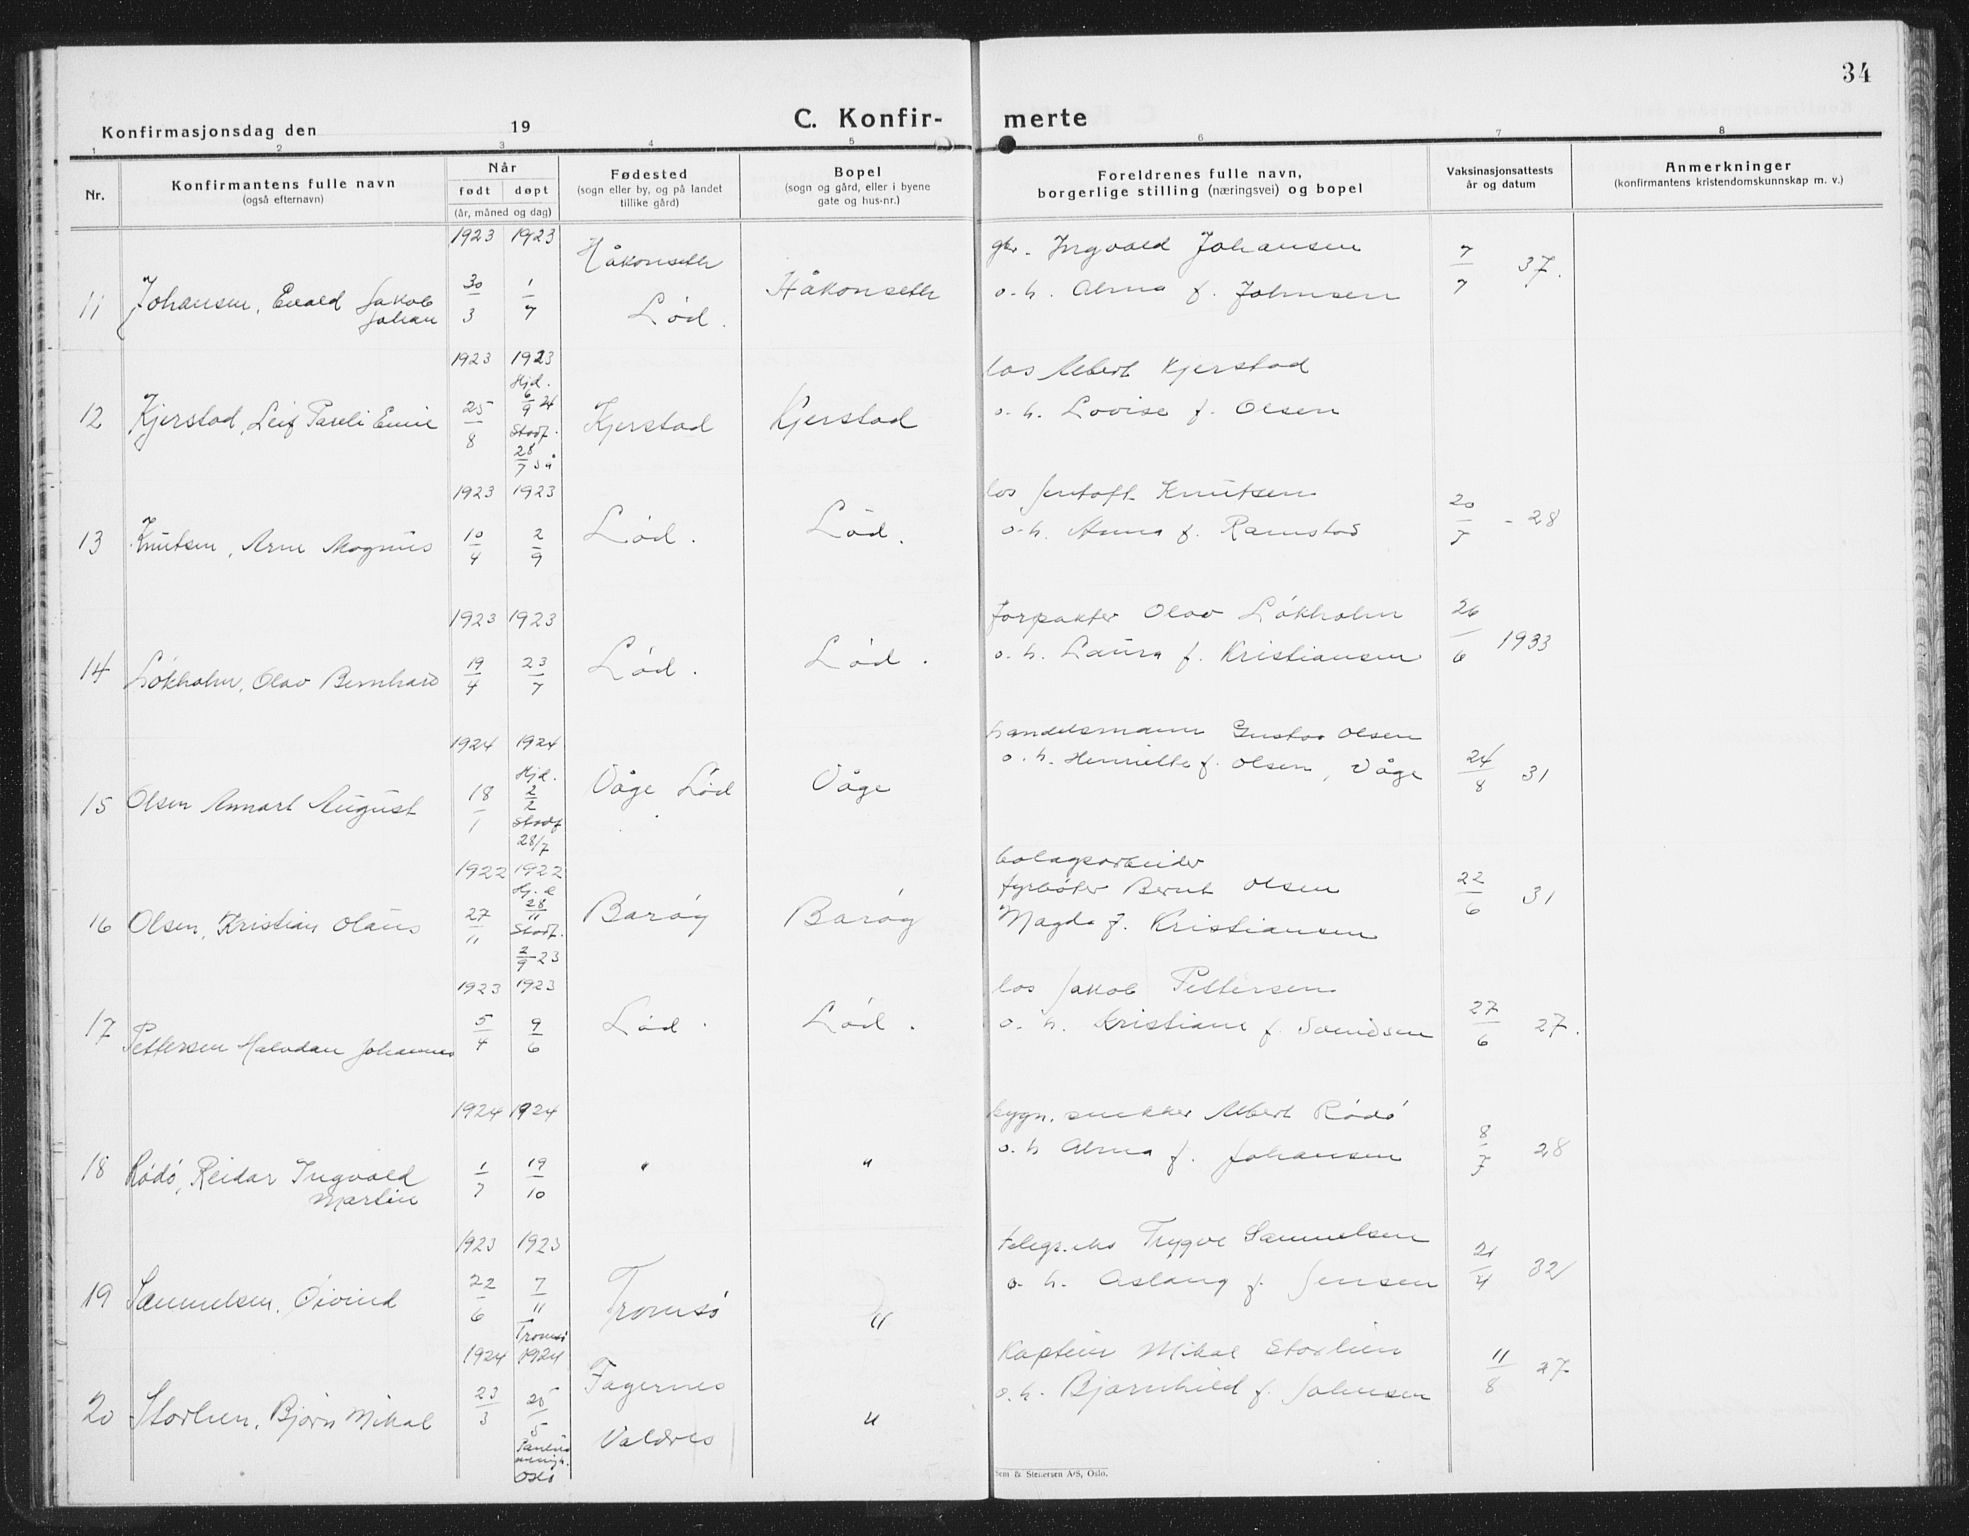 34
Konfirmasjonsdag den 19
C. Konfir-
merte
1 2 3 4 5 6 7 8
Nr.
Konfirmantens fulle navn
(også efternavn)
Når
født døpt
(år, måned og dag)
Fødested
(sogn eller by, og på landet
tillike gård)
Bopel
(sogn og gård, eller i byene
gate og hus-nr.)
Foreldrenes fulle navn,
borgerlige stilling (næringsvei) og bopel
Vaksinasjonsattests
år og datum
Anmerkninger
(konfirmantens kristendomskunnskap m. v.)
1923 1923
11 Johansen, Evald Jakob
Johan
30/3 1/7
Håkonseth
Lød.
Håkonseth
gbr. Ingvald Johansen
o. h. Alma f. Johnsen
7/7 37.
1923 1923
12 Kjerstad, Leif Pareli Emil
25/8
Hjd.
6/9 24
Stadf.
28/7 så
Kjerstad
Kjerstad
los Albert Kjerstad
o. h. Lovise f. Olsen
1923 1923
13 Knutsen, Arne Magnus
10/4 2/9
Lød.
Lød.
los Jentoft Knutsen
o. h. Anna f. Ramstad
20/7 - 28
1923 1923
14 Løkholm, Olav Bernhard
19/4 23/7
Lød.
Lød.
Forpakter Olav Løkholm
o. h. Laura f. Kristiansen
26/6 1933
1924 1924
15 Olsen Annart August
18/1
Hjd.
2/2
Stadf
28/7
Våge Lød
Våge
handelsmann Gustav Olsen
o. h. Henriette f. Olsen, Våge
24/8 31
1922 1922
16 Olsen, Kristian Olaus
27/11
Hj. d
28/11
Stadf.
2/9 23
Barøy
Barøy
bolagsarbeider
fyrbøter Bernt Olsen
Magda f. Kristiansen
22/6 31
1923 1923
17 Pettersen Halvdan Johannes
5/4 9/6
Lød.
Lød.
los Jakob Pettersen
o. h. Kristiane f. Svendsen
27/6 27.
1924 1924
18 Rødø, Reidar Ingvald
Martin
1/7 19/10
"
"
bygn. snekker Albert Rødø
o. h Alma f. Johansen
8/7 28
1923 1923
19 Samuelsen, Øivind
22/6 7/11
Tromsø
Tromsø
"
telegr. eks Trygve Samuelsen
o. h. Aslaug f. Jensen
21/4 32
1924 1924
20 Storlien, Bjørn Mikal
23/3 25/5
Paulus
menigh.
Oslo
Fagernes
Valdres
"
Kaptein Mikal Storlien
o. h. Bjørnhild f. Johnsen
11/8 27
Sem & Stenersen A/S, Oslo.